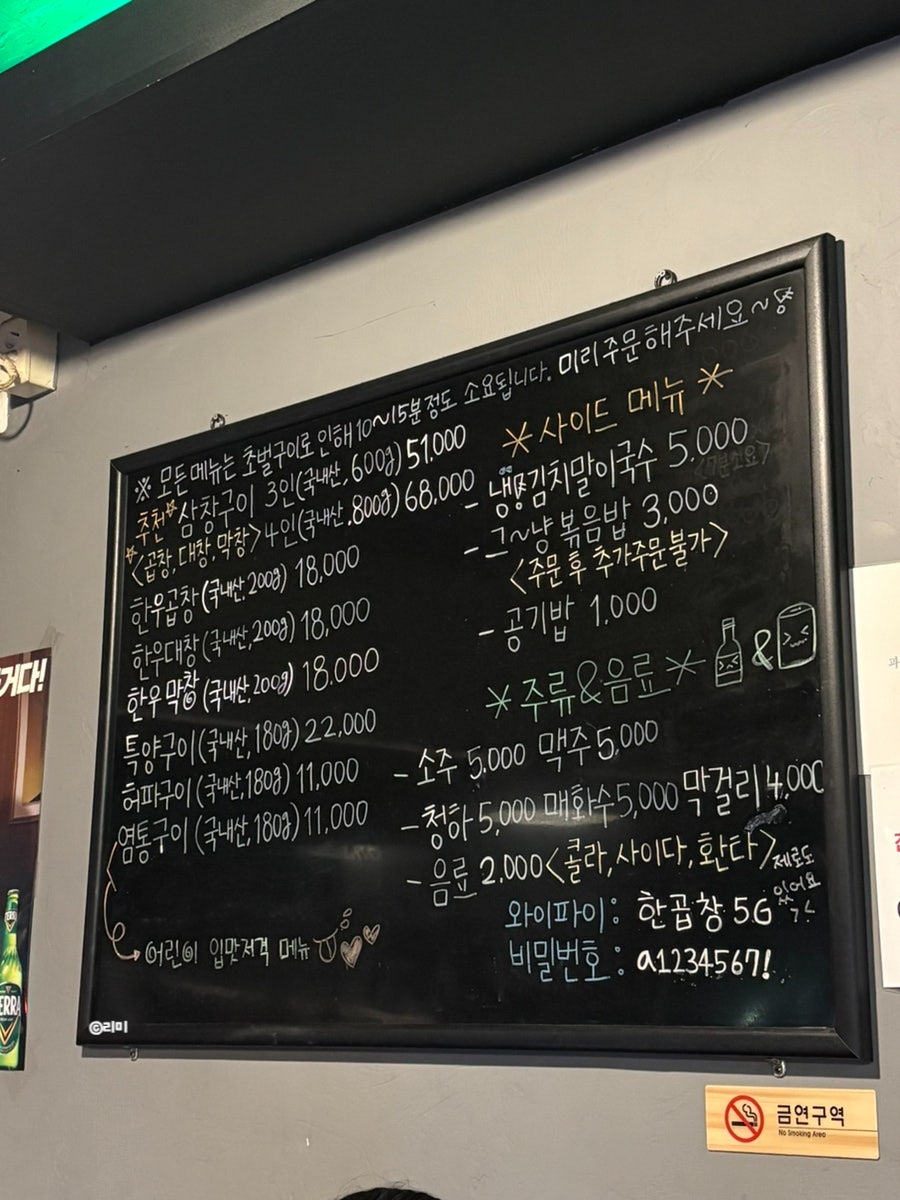 ※ 모든메뉴는 초벌구이로 인해 10~15분정도 소요됩니다. 미리 주문해주세요~
추천 삼창구이 3인(국내산, 600g) 51,000
<곱창, 대창, 막창> 4인(국내산, 800g) 68,000
한우곱창(국내산, 200g) 18,000
한우대창(국내산, 200g) 18,000
한우막창(국내산, 200g) 18,000
특양구이(국내산, 180g) 22,000
허파구이(국내산, 180g) 11,000
염통구이(국내산, 180g) 11,000
어린이 입맛저격 메뉴
* 사이드 메뉴 *
- 냉김치말이국수 5,000
<7분소요>
- 그~냥 볶음밥 3,000
<주문 후 추가주문 불가>
- 공기밥 1,000
* 주류&음료 * &
- 소주 5,000 맥주 5,000
- 청하 5,000 매화수 5,000 막걸리 4,000
- 음료 2,000 <콜라, 사이다, 환타> 제로도
있어요
와이파이: 한곱창 5G
비밀번호: a1234567!
©리미
거다!
ERRA
금연구역
No Smoking Area